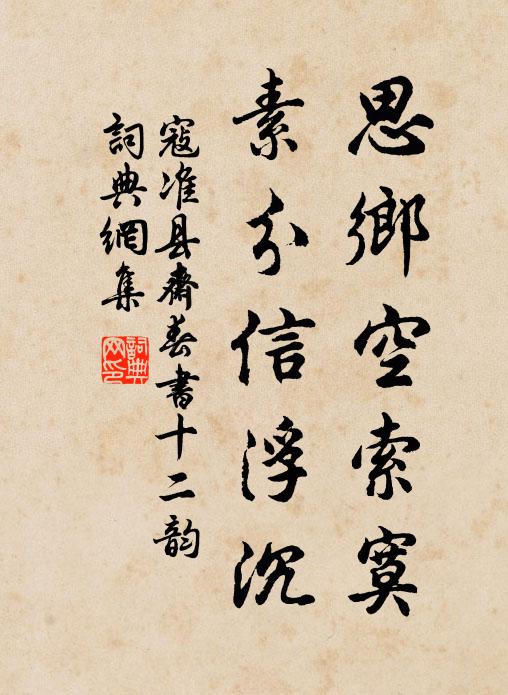 思鄉空索寞
素分信浮沉
寇准县齋春書十二韵
詞典網集
詞典网印